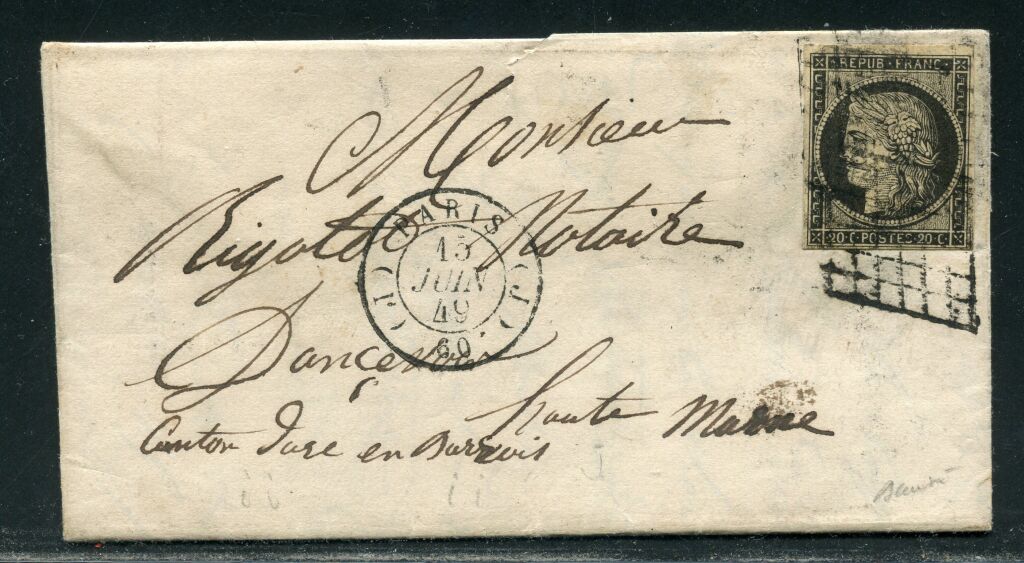 REPUB · FRANC ·
20 C · POSTES · 20 C
Monsieur
Rigoldt Notaire
PARIS
(J) (J)
15
JUIN
49
60
Dancevoir
haute Marne
Canton d'arc en Barrois